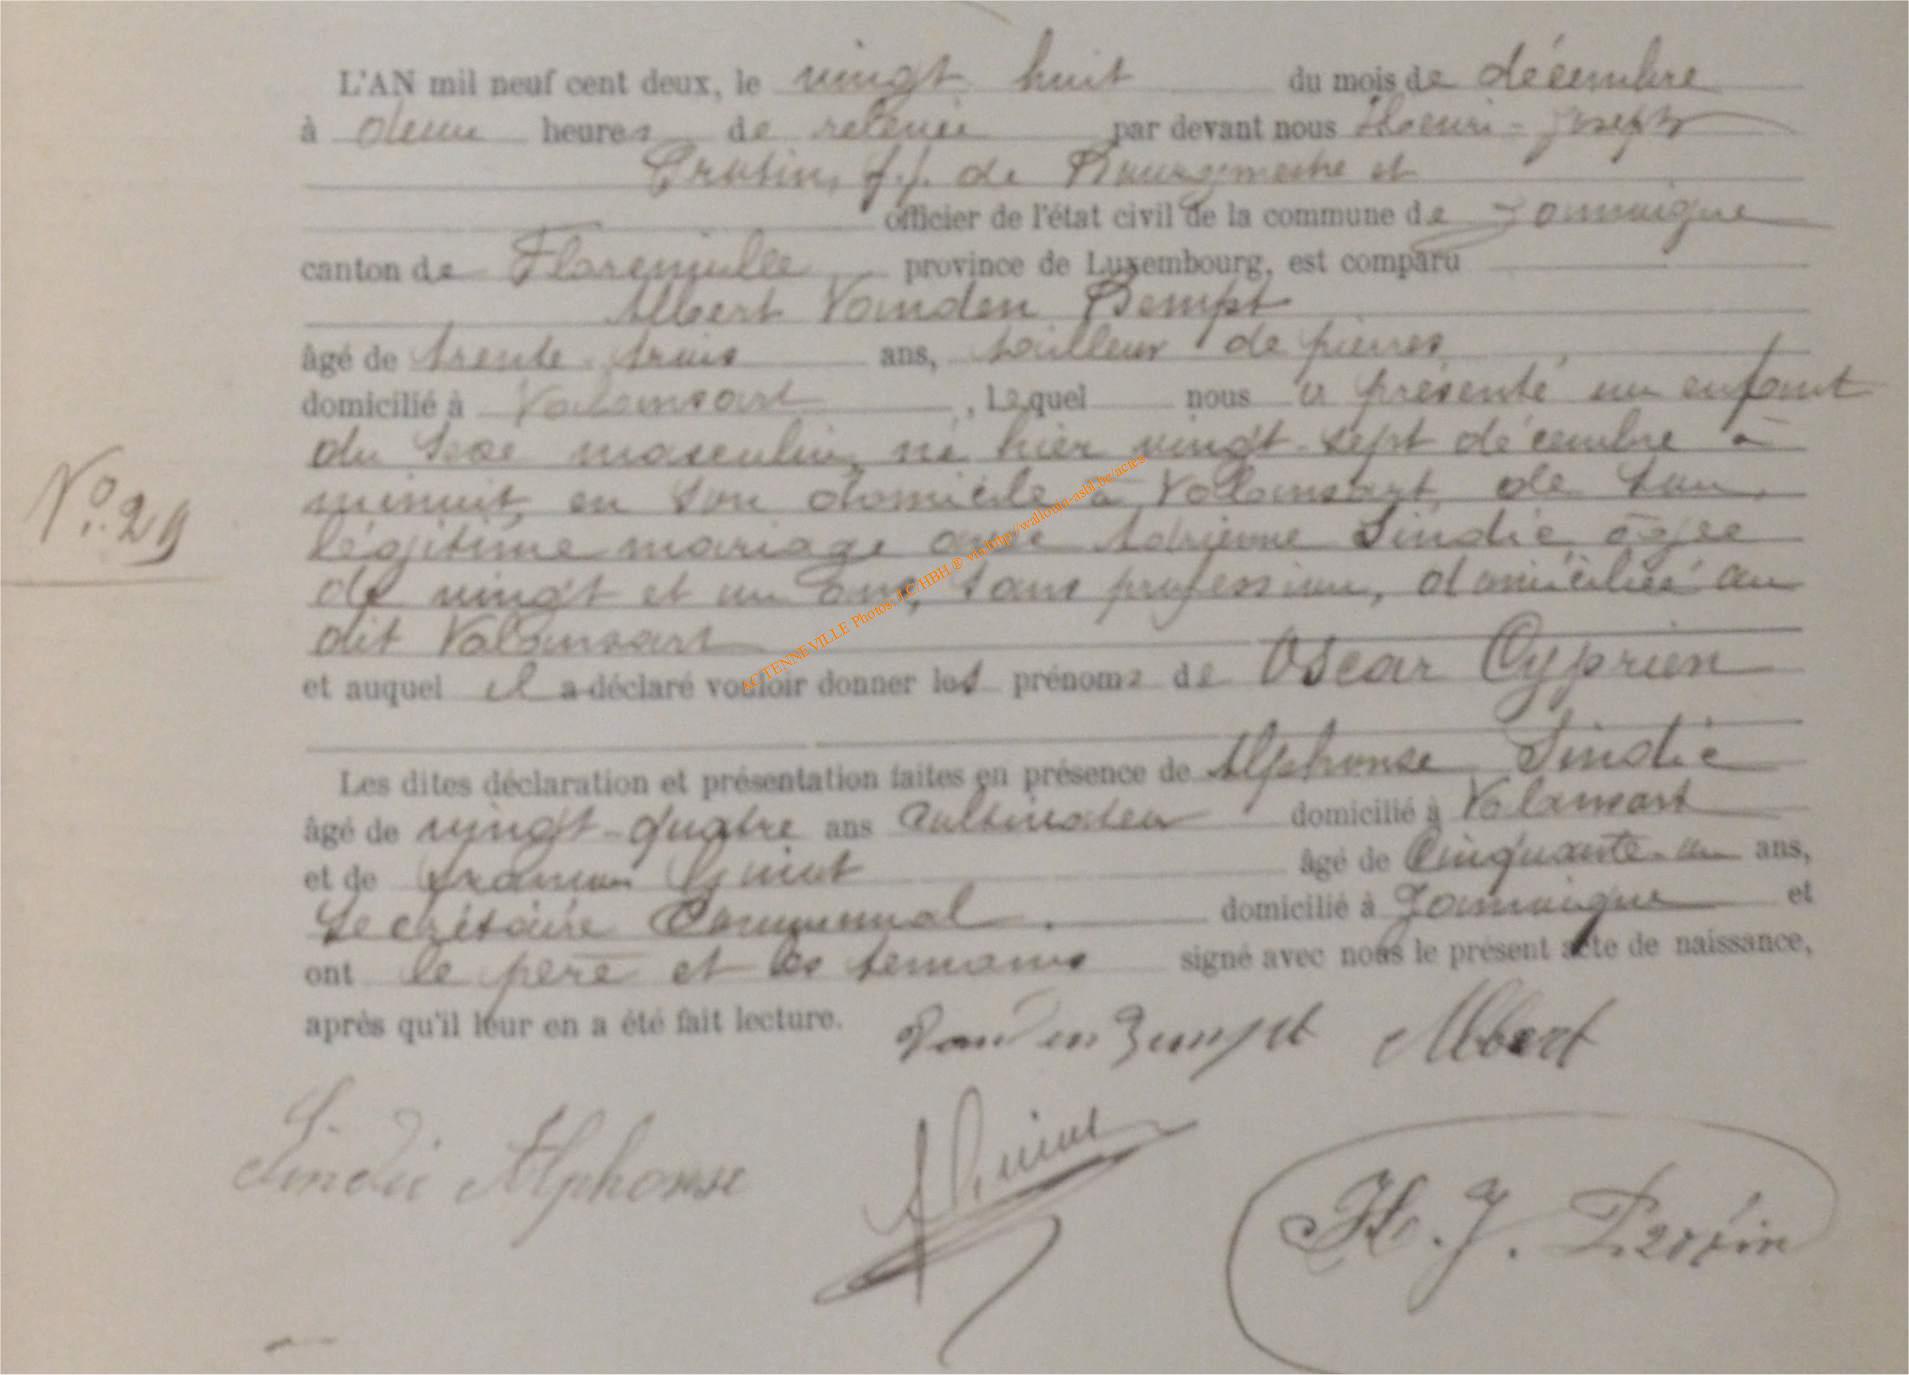 L'AN mil neuf cent deux, le vingt huit du mois de décembre
à deux heures de relevée par devant nous Henri-Joseph
f.f. de Bourgmestre et
officier de l'état civil de la commune de Jamoigne
canton de Florenville province de Luxembourg, est comparu
Albert Vanden Bempt
âgé de trente trois ans, tailleur de pierres
domicilié à Valansart, Lequel nous a présenté un enfant
du sexe masculin, né hier vingt-sept décembre à
N° 29
minuit, en son domicile à Valansart, de son
légitime mariage avec Adrienne Sindic âgée
de vingt et un ans, sans profession, domiciliée au
dit Valansart
et auquel il a déclaré vouloir donner les prénoms de Oscar Cyprien
Les dites déclaration et présentation faites en présence de Alphonse Sindic
âgé de vingt-quatre ans Cultivateur domicilié à Valansart
et de âgé de Cinquante-un ans,
Secrétaire Communal. domicilié à Jamoigne et
ont le père et les temoins signé avec nous le présent acte de naissance,
après qu'il leur en a été fait lecture. Vanden Bempt Albert
Sindic Alphonse
H. J.
ACTENNEVILLE Photos: J.C. HBH ® via http://wallonia-asbl.be/actes